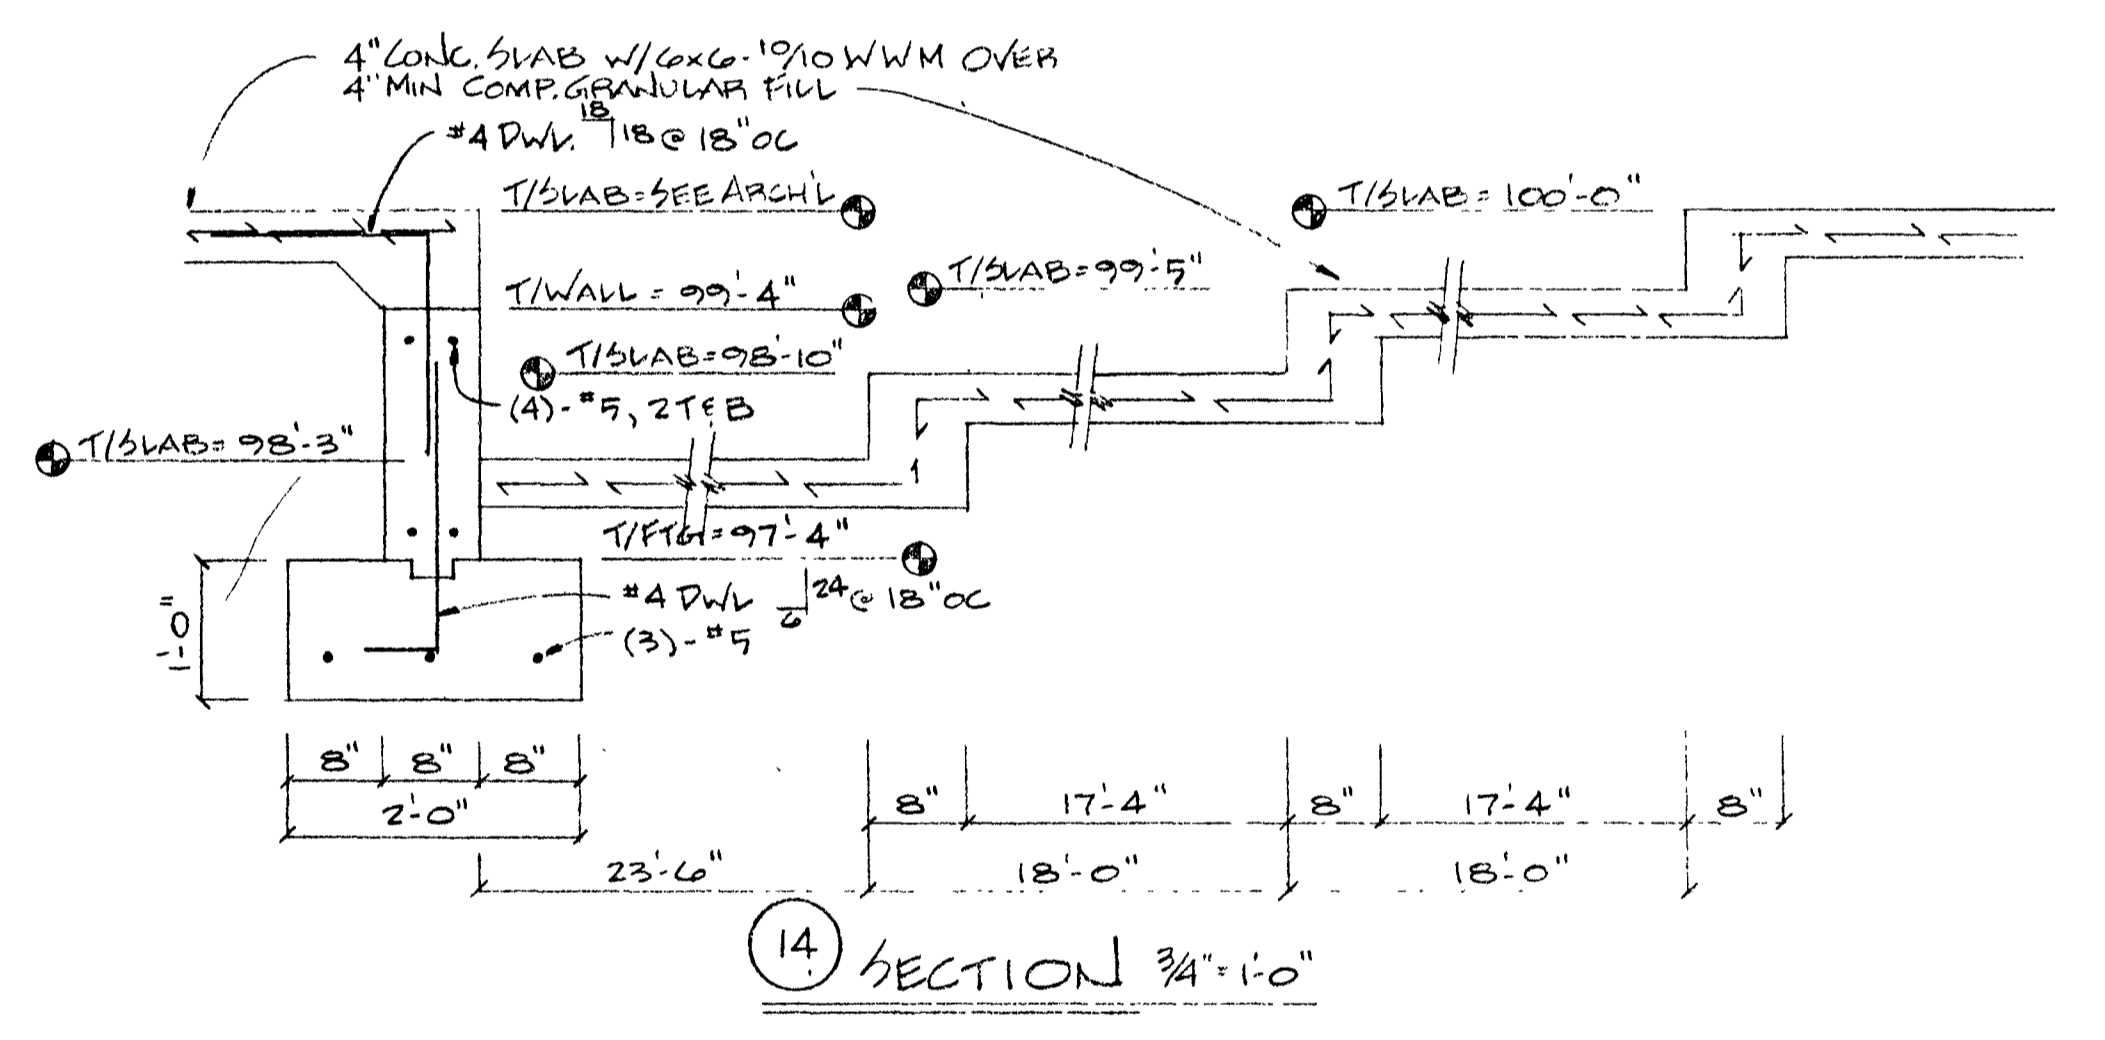 4" CONC. SLAB W/6x6-10/10 WWM OVER
4" MIN COMP. GRANULAR FILL
#4 DWL. 18 18 @ 18" OC
T/SLAB = SEE ARCH'L
T/SLAB = 100'-0"
T/WALL = 99'-4"
T/SLAB = 99'-5"
T/SLAB = 98'-10"
(4)-#5, 2 T & B
T/SLAB = 98'-3"
T/FTG = 97'-4"
1'-0"
#4 DWL 6 24 @ 18" OC
(3)-#5
8" 8" 8"
2'-0"
8" 17'-4" 8" 17'-4" 8"
23'-6" 18'-0" 18'-0"
14 SECTION 3/4" = 1'-0"